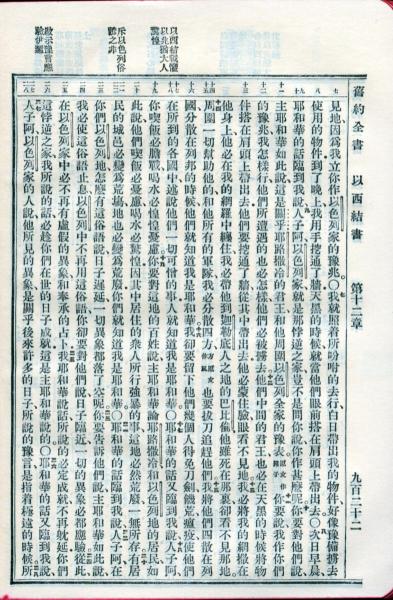 舊約全書 以西結書 第十二章 九百二十二
見地因為我立你作以色列家的豫兆〇我就照着所吩咐的去行白日帶出我的物件好像豫備擄去
使用的物件到了晚上我用手挖通了牆天黑的時候就當他們眼前搭在肩頭上帶出去〇次日早晨
耶和華的話臨到我說人子阿以色列家就是那悖逆之家豈不是問你說你作甚麼呢你要對他們說
主耶和華如此說這是關乎耶路撒冷的君王和他周圍以色列全家的豫表原文作擔子你要說我作你們
的豫兆我怎樣行他們所遭遇的也必怎樣他們必被擄去他們中間的君王也必在天黑的時候將物
件搭在肩頭上帶出去他們要挖通了牆從其中帶出去他必蒙住臉眼看不見地我必將我的網撒在
他身上他必在我的網羅中纏住我必帶他到迦勒底人之地的巴比倫他雖死在那裏卻看不見那地
周圍一切幫助他的和他所有的軍隊我必分散四方方原文作風也要拔刀追趕他們我將他們四散在列
國分散在列邦的時候他們就知道我是耶和華我卻要留下他們幾個人得免刀劍饑荒瘟疫使他們
在所到的各國中述說他們一切可憎的事人就知道我是耶和華〇耶和華的話又臨到我說人子阿
你喫飯必膽戰喝水必惶惶憂慮你要對這地的百姓說主耶和華論耶路撒冷和以色列地的居民如
此說他們喫飯必憂慮喝水必驚惶因其中居住的眾人所行強暴的事這地必然荒廢一無所存有居
民的城邑必變為荒場地也必變為荒廢你們就知道我是耶和華〇耶和華的話臨到我說人子阿在
你們以色列地怎麼有這俗語說日子遲延一切異象都落了空呢你要告訴他們說主耶和華如此說
我必使這俗語止息以色列中不再用這俗語你卻要對他們說日子臨近一切的異象必都應驗從此
在以色列家中必不再有虛假的異象和奉承的占卜我耶和華說話所說的必定成就不再躭延你們
這悖逆之家我所說的話必趁你們在世的日子成就這是主耶和華說的〇耶和華的話又臨到我說
人子阿以色列家的人說他所見的異象是關乎後來許多的日子所說的豫言是指着極遠的時候所
以西結戰慄
以兆猶大人
驚惶
斥以色列俗
語之非
啟示豫言應
驗伊邇